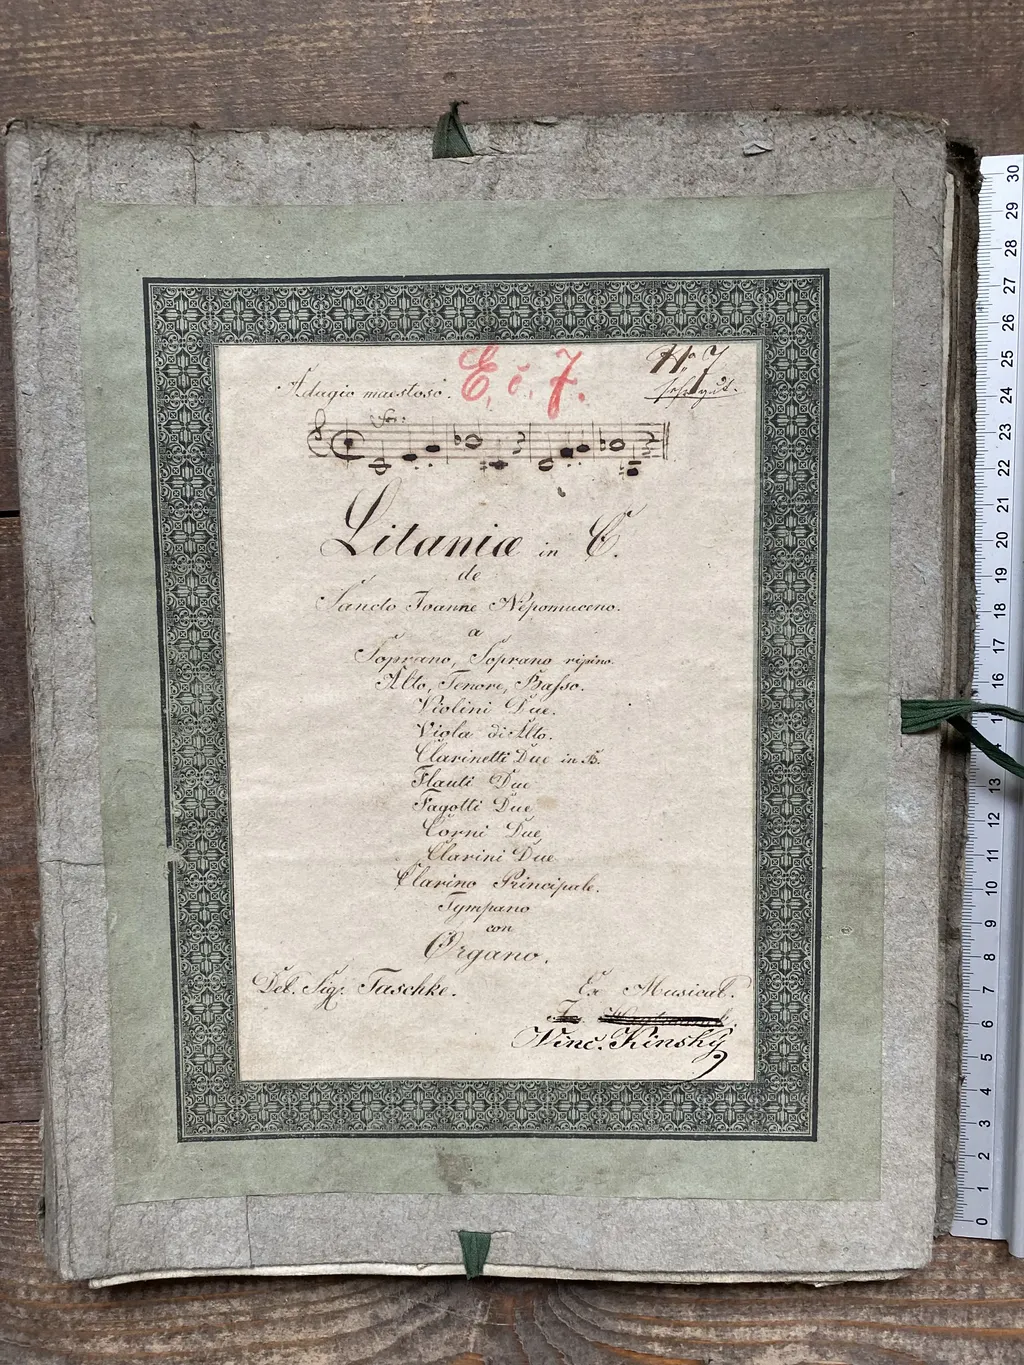 E. č. 7.
No 7
sehr gut.
Adagio maestoso.
Litaniæ in C.
de
Sancto Joanne Nepomuceno.
a
Soprano, Soprano ripino.
Alto, Tenore, Basso.
Violini Due.
Viola di Alto.
Clarinetti Due in B.
Flauti Due
Fagotti Due
Corni Due
Clarini Due
Clarino Principale.
Tympano
con
Organo.
Del. Sig. Taschke.
Ex Musical.
Vinc. Kinský
30
29
28
27
26
25
24
23
22
21
20
19
18
17
16
15
14
13
12
11
10
9
8
7
6
5
4
3
2
1
0